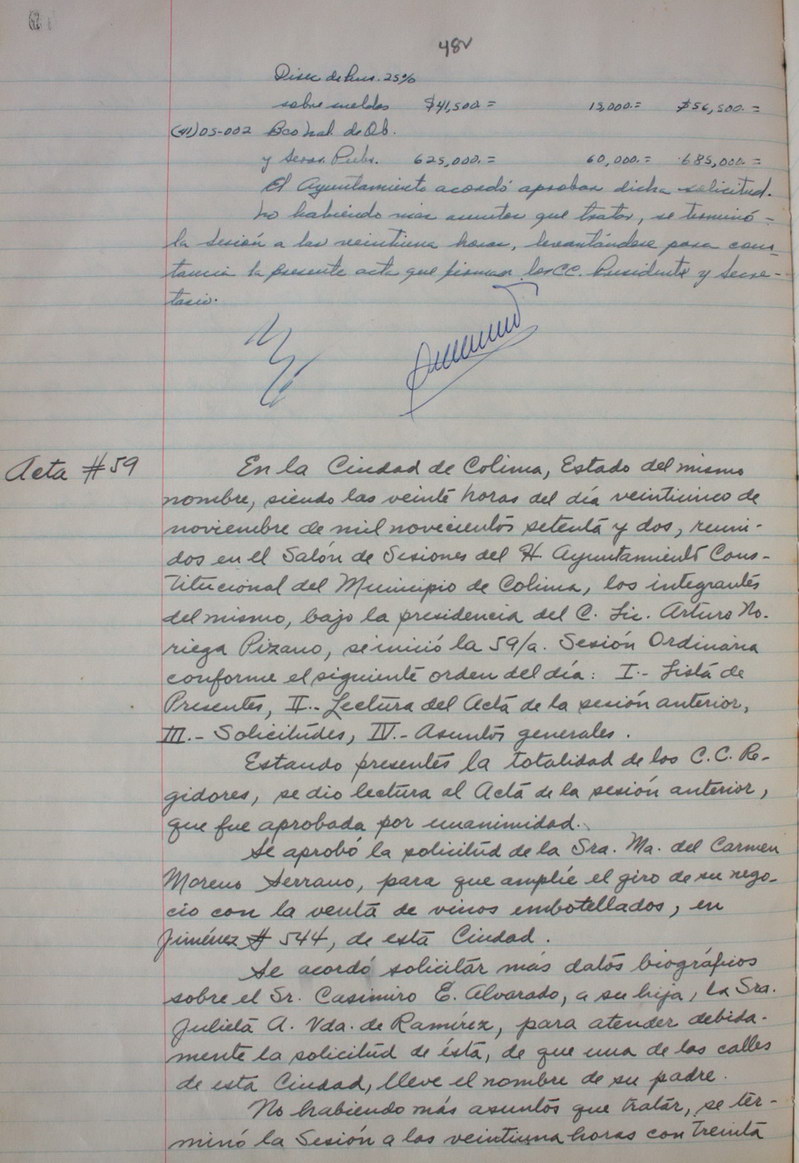 48v
Disec. de Pens. 25%
sobre sueldos $41,500.= 15,000.= $56,500.=
(41)05-002 Bco Nal. de Ob.
y Servs. Pubs. 625,000.= 60,000.= 685,000.=
El Ayuntamiento acordó aprobar dicha solicitud.
No habiendo más asuntos que tratar, se terminó
la Sesión a las veintiuna horas, levantándose para cons-
tancia la presente acta que firman los CC. Presidente y Secre-
tario.
Acta # 59
En la Ciudad de Colima, Estado del mismo
nombre, siendo las veinte horas del día veinticinco de
noviembre de mil novecientos setenta y dos, reuni-
dos en el Salón de Sesiones del H. Ayuntamiento Cons-
titucional del Municipio de Colima, los integrantes
del mismo, bajo la presidencia del C. Lic. Arturo No-
riega Pizano, se inició la 59/a. Sesión Ordinaria
conforme el siguiente orden del día: I.- Lista de
Presentes, II.- Lectura del Acta de la sesión anterior,
III.- Solicitudes, IV.- Asuntos generales.
Estando presentes la totalidad de los C.C. Re-
gidores, se dio lectura al Acta de la sesión anterior,
que fue aprobada por unanimidad.
Se aprobó la solicitud de la Sra. Ma. del Carmen
Moreno Serrano, para que amplíe el giro de su nego-
cio con la venta de vinos embotellados, en
Jiménez # 544, de esta Ciudad.
Se acordó solicitar más datos biográficos
sobre el Sr. Casimiro E. Alvarado, a su hija, la Sra.
Julieta A. Vda. de Ramírez, para atender debida-
mente la solicitud de ésta, de que una de las calles
de esta Ciudad, lleve el nombre de su padre.
No habiendo más asuntos que tratar, se ter-
minó la Sesión a las veintiuna horas con treinta